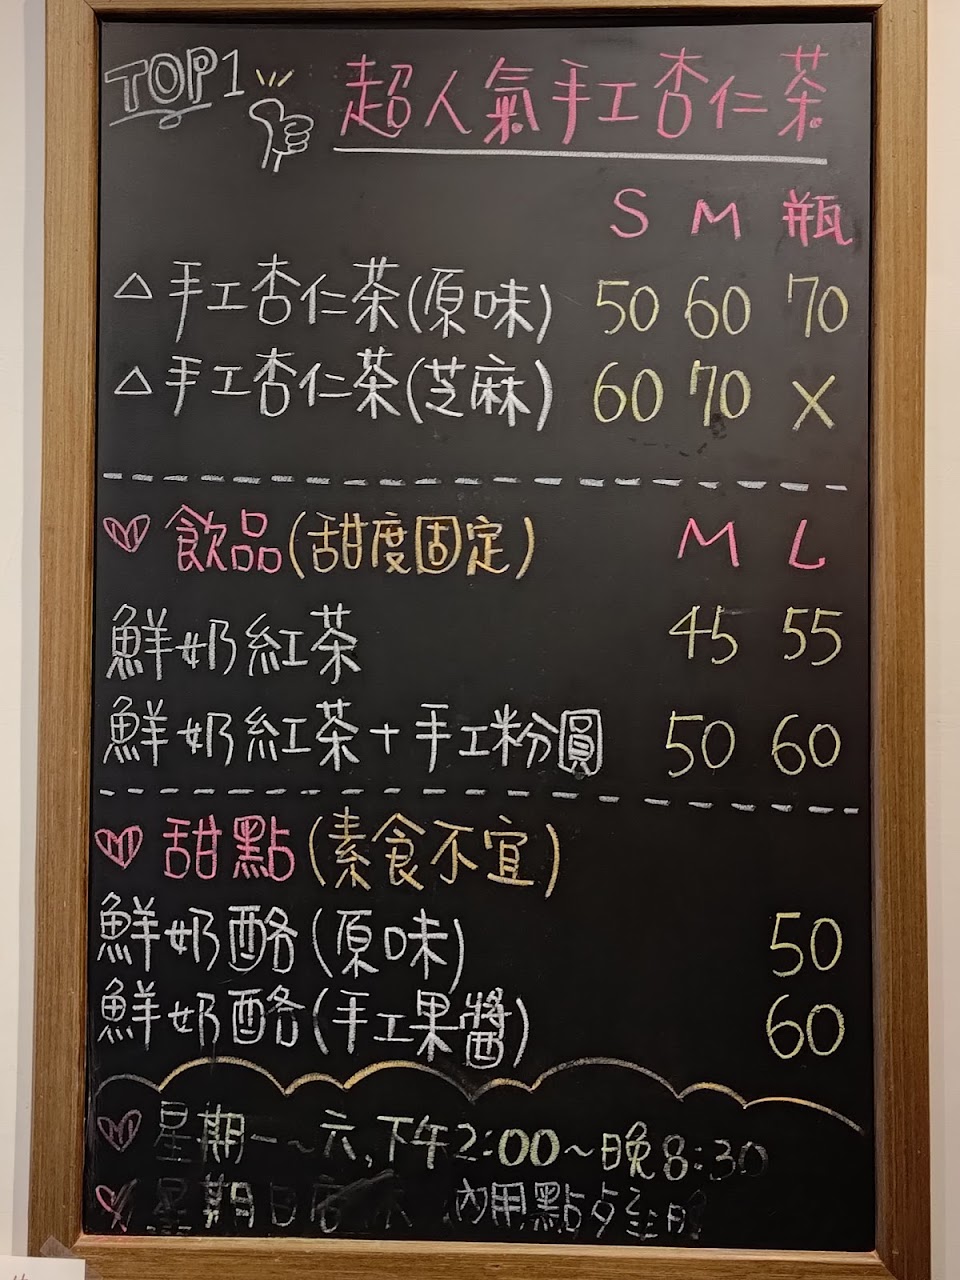 TOP1 超人氣手工杏仁茶
S M 瓶
△手工杏仁茶(原味) 50 60 70
△手工杏仁茶(芝麻) 60 70 X
飲品(甜度固定) M L
鮮奶紅茶 45 55
鮮奶紅茶+手工粉圓 50 60
甜點(素食不宜)
鮮奶酪(原味) 50
鮮奶酪(手工果醬) 60
星期一~六,下午2:00~晚8:30
星期日店休 內用點